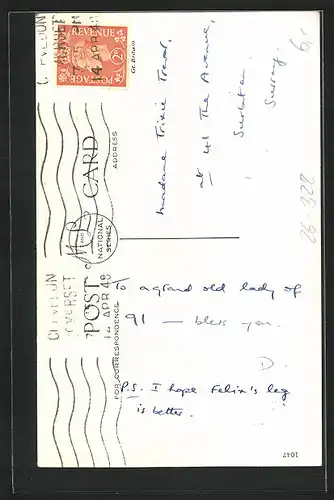 CLEVEDON
SOMERSET
14 APR 48
POSTAGE
REVENUE
2D
Gt. Britain
POST CARD
M and L
NATIONAL
SERIES
FOR CORRESPONDENCE
ADDRESS
CLEVEDON
SOMERSET
12 APR 48
To a grand old lady of
91 — bless you.
D.
P.S. I hope Felix's leg
is better.
Madame Trixie
at 41 The Avenue,
Surbiton
Surrey.
6,-
26-328
1047